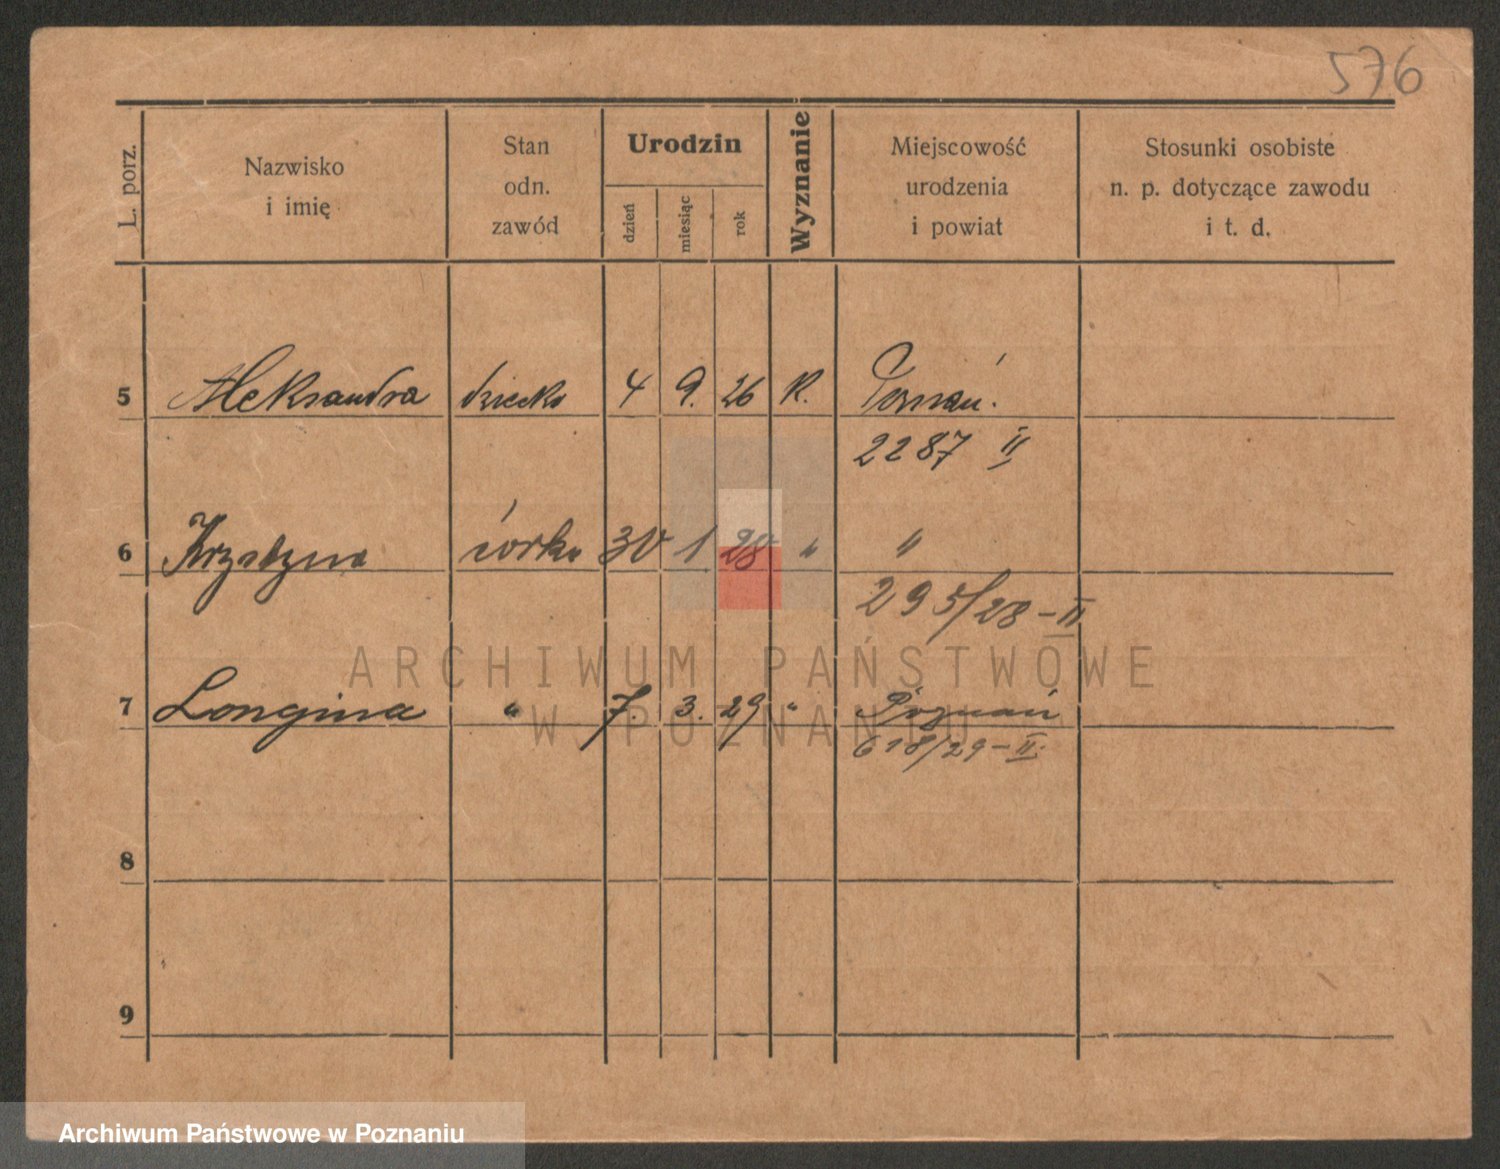 576
L. porz.
Nazwisko
i imię
Stan
odn.
zawód
Urodzin
dzień
miesiąc
rok
Wyznanie
Miejscowość
urodzenia
i powiat
Stosunki osobiste
n. p. dotyczące zawodu
i t. d.
5 Aleksandra dziecko 4 9. 26 K. Poznań.
2287 II
6 Krystyna córka 30 1 28 " "
295/28-II
ARCHIWUM PAŃSTWOWE
7 Longina " 7. 3. 29 " Poznań
W POZNANIU
618/29-II.
8
9
Archiwum Państwowe w Poznaniu